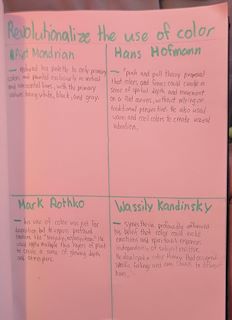 Revolutionalize the use of color
Piet Mondrian
— reduced his palette to only primary
colors and painted exclusively in vertical
and horizontal lines, with the primary
colors being white, black, and gray.
Hans Hofmann
— "push and pull" theory proposed
that color, and forms could create a
sense of spatial depth and movement
on a flat canvas, without relying on
traditional perspective. He also used
warm and cool colors to create visual
Mark Rothko
— his use of color was not for
but to express profound
emotions like "tragedy, ecstasy, doom". He
used multiple thin layers of paint
to create a sense of glowing depth
and atmosphere.
Wassily Kandinsky
— Synesthesia profoundly influenced
his belief that color could evoke
emotions and spiritual responses
independently of subject matter.
He developed a color theory that assigned
specific feelings and even sounds to different
hues.